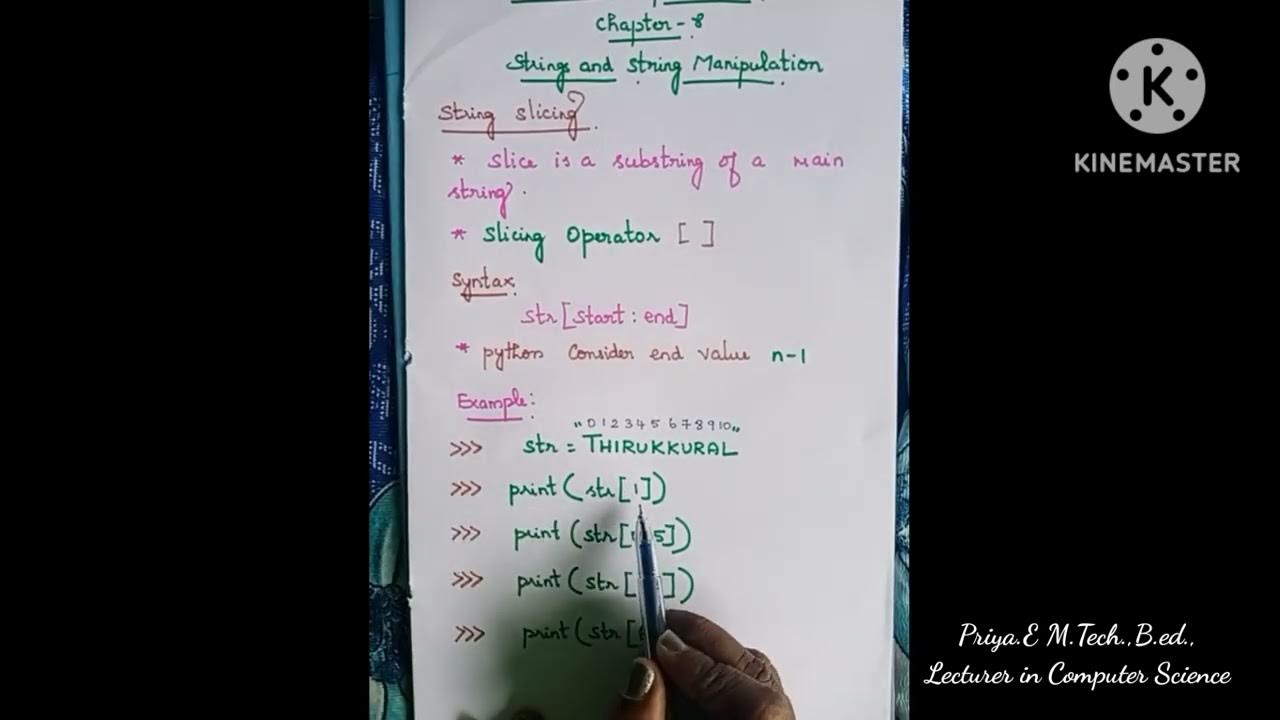 Chapter-8
Strings and string Manipulation
String slicing
* Slice is a substring of a main
string.
* Slicing Operator [ ]
Syntax
str[start : end]
* python Consider end value n-1
Example:
"0 1 2 3 4 5 6 7 8 9 10"
>>> str = THIRUKKURAL
>>> print (str[1])
>>> print (str[ 5])
>>> print (str[ ])
>>> print (str[
K
KINEMASTER
Priya.E M.Tech.,B.ed.,
Lecturer in Computer Science